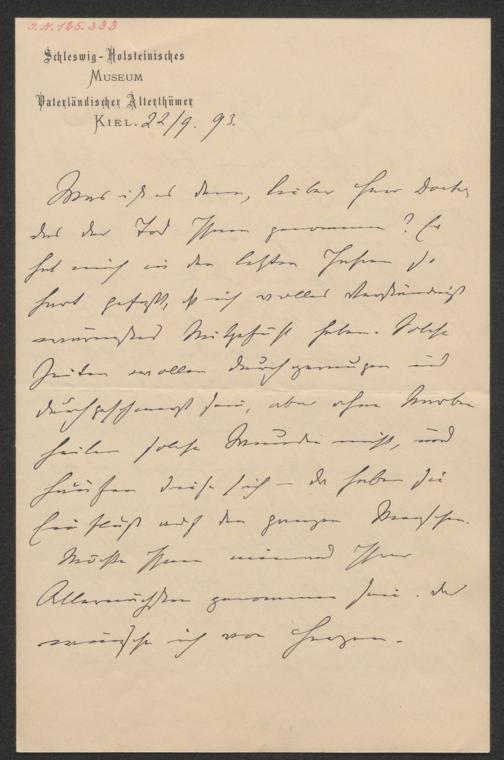 J.N. 125.333
Schleswig-Holsteinisches
MUSEUM
Vaterländischer Alterthümer
KIEL. 22/9. 93.
Was ist es denn, lieber Herr Doctor,
das der Tod Ihnen genommen? Er
hat mich in den letzten Jahren so
hart gefaßt, ich volles Verständniß
wärmstes Mitgefühl habe. Solche
Zeiten wollen durchgerungen und
durchgeschmerzt sein, aber ohne Narben
heilen solche Wunden nicht, und
häufen diese sich – da haben sie
Einfluß auf den ganzen Menschen.
Möchte Ihnen niemand Ihrer
Allernächsten genommen sein. das
wünsche ich von Herzen.